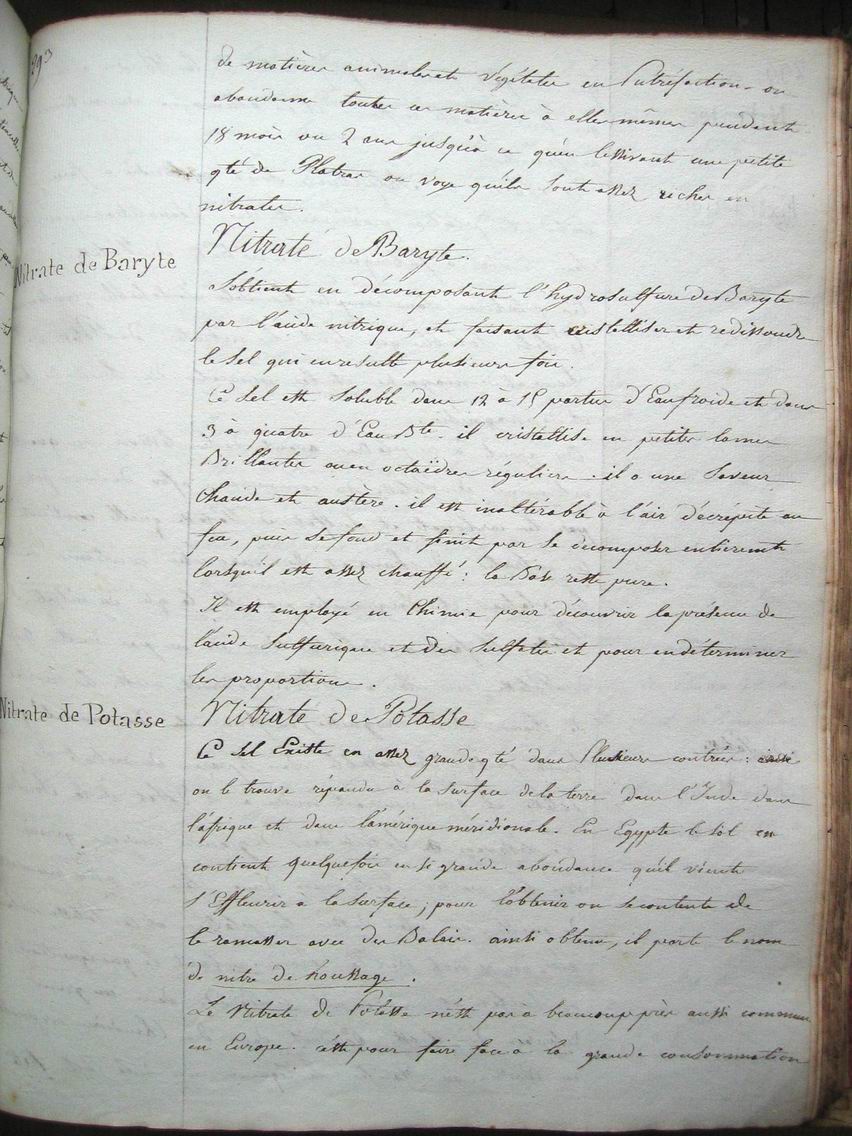 293
de matières animales et végétales en Putréfaction. on
abandonne toutes ces matières à elles mêmes pendant
18 mois ou 2 ans jusqu'à ce qu'en lessivant une petite
qté de Platras on voye qu'ils sont assez riches en
nitrates.
Nitrate de Baryte
Nitrate de Baryte.
S'obtient en décomposant l'hydrosulfure de Baryte
par l'acide nitrique, et faisant cristalliser et redissoudre
le sel qui en resulte plusieurs fois.
Ce sel est soluble dans 12 à 15 parties d'Eau froide et dans
3 à quatre d'Eau Bte. il cristallise en petites lames
Brillantes ou en octaëdres réguliers. il a une saveur
chaude et austère. il est inaltérable à l'air décrepite au
feu, puis se fond et finit par se décomposer entierement
lorsqu'il est assez chauffé : la Base reste pure.
Il est employé en Chimie pour découvrir la présence de
l'acide sulfurique et des sulfates et pour en déterminer
les proportions.
Nitrate de Potasse
Nitrate de Potasse
Ce sel Existe en assez grande qté dans Plusieurs contrées :
on le trouve répandu à la surface de la terre dans l'Inde dans
l'afrique et dans l'amérique méridionale. En Egypte le sol en
contient quelquefois en si grande abondance qu'il vient
s'Effleurir à la surface ; pour l'obtenir on se contente de
le ramasser avec des Balais. ainsi obtenu, il porte le nom
de nitre de houssage.
Le Nitrate de Potasse n'est pas à beaucoup près aussi commun
en Europe. c'est pour faire face à la grande consommation